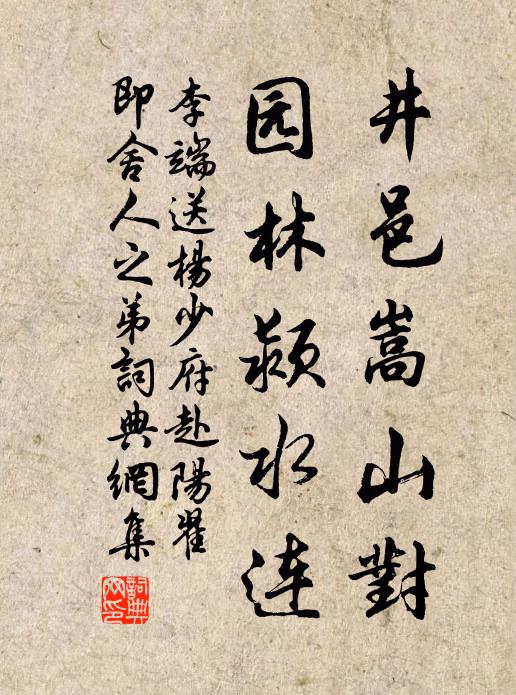 井邑嵩山對
园林颍水連
李端送楊少府赴陽翟
即舍人之弟詞典網集
詞典网印